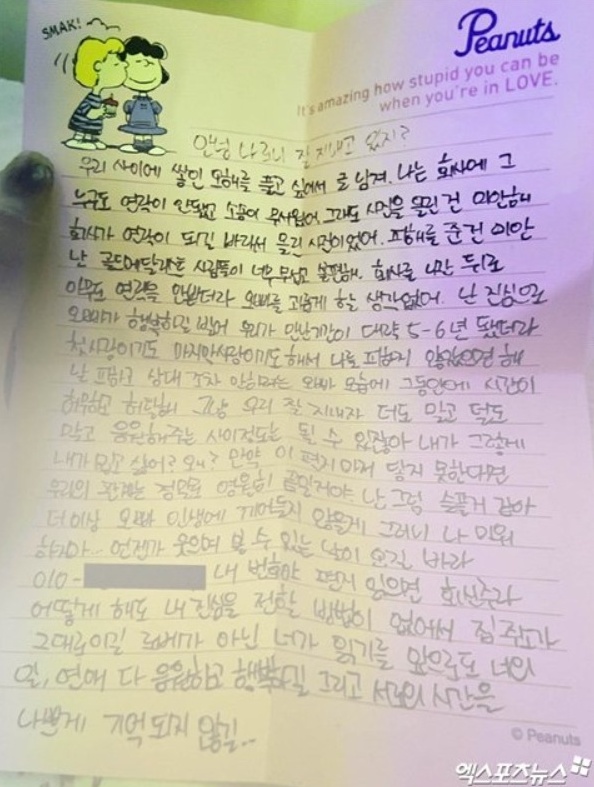 SMAK!
Peanuts
It's amazing how stupid you can be
when you're in LOVE.
안녕 나르니 잘 지내고 있지?
우리 사이에 쌓인 오해를 풀고 싶어서 글 남겨. 나는 회사에 그
누구도 연락이 안됐고 소송이 무서웠어. 그래도 사진을 올린 건 미안해
회사가 연락이 되길 바라서 올린 사진이었어. 피해를 준건 미안
난 골드메달리스트 사람들이 너무 무섭고 슬퍼해. 회사를 나간 뒤로
아무도 연락을 안받더라 오빠를 괴롭게 할 생각없어. 난 진심으로
오빠가 행복하길 빌어 우리가 만난기간이 대략 5-6년 됐더라
첫사랑이기도 마지막사랑이기도 해서 나를 피하지 않았으면 해
날 피하고 상대 조차 안하려는 오빠 모습에 그동안에 시간이
허무하고 허탈해 그냥 우리 잘 지내자 더도 말고 덜도
말고 응원해주는 사이정도는 될 수 있잖아 내가 그렇게
내가 밉고 싫어? 왜? 만약 이 편지마저 닿지 못한다면
우리의 관계는 정말로 영원히 끝일거야 난 그럼 슬플거 같아
더 이상 오빠 인생에 끼어들지 않을게 그러니 나 미워
하지마... 언젠가 웃으며 볼 수 있는 날이 오길 바라
010- 내 번호야 편지 읽으면 회신주라
어떻게 해도 내 진심을 전할 방법이 없어서 집 주소가
그대로이길 로베가 아닌 너가 읽기를 앞으로도 너의
일, 연애 다 응원하고 행복하길 그리고 서로의 시간을
나쁘게 기억되지 않길..
© Peanuts
엑스포츠뉴스